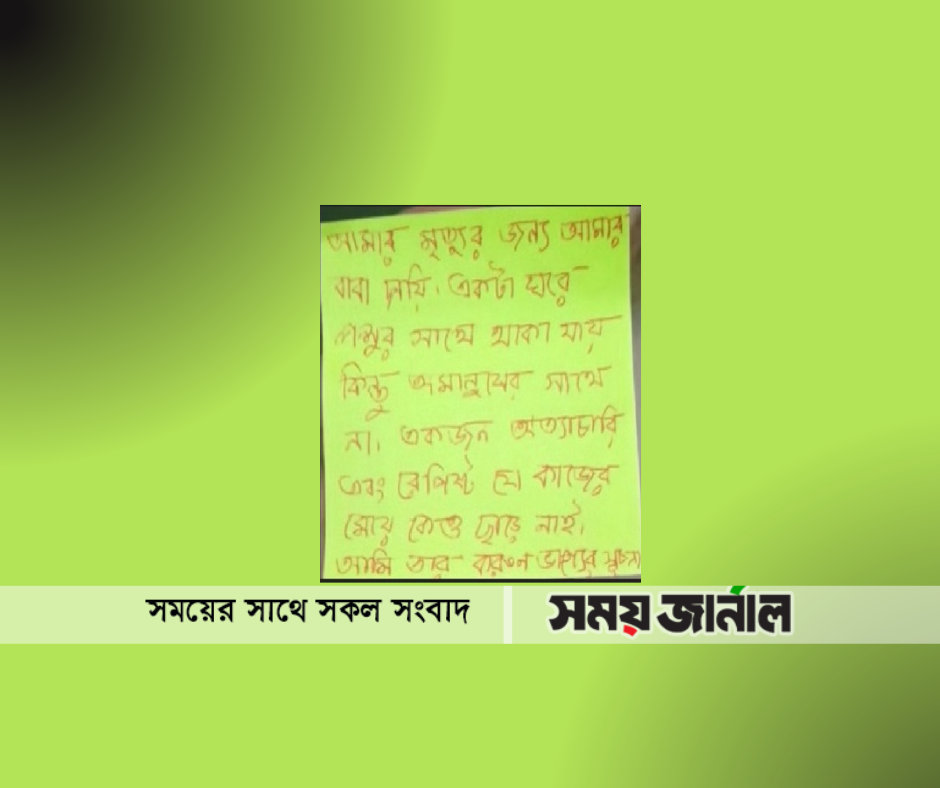 আমার মৃত্যুর জন্য আমার
বাবা দায়ি। একটা ঘরে
পশুর সাথে থাকা যায়
কিন্তু অমানুষের সাথে
না। একজন অত্যাচারি
এবং রেপিষ্ট যে কাজের
মেয়ে কেও ছাড়ে নাই।
আমি তার করুন ভাগ্যের সূচনা
সময়ের সাথে সকল সংবাদ
সময় জার্নাল